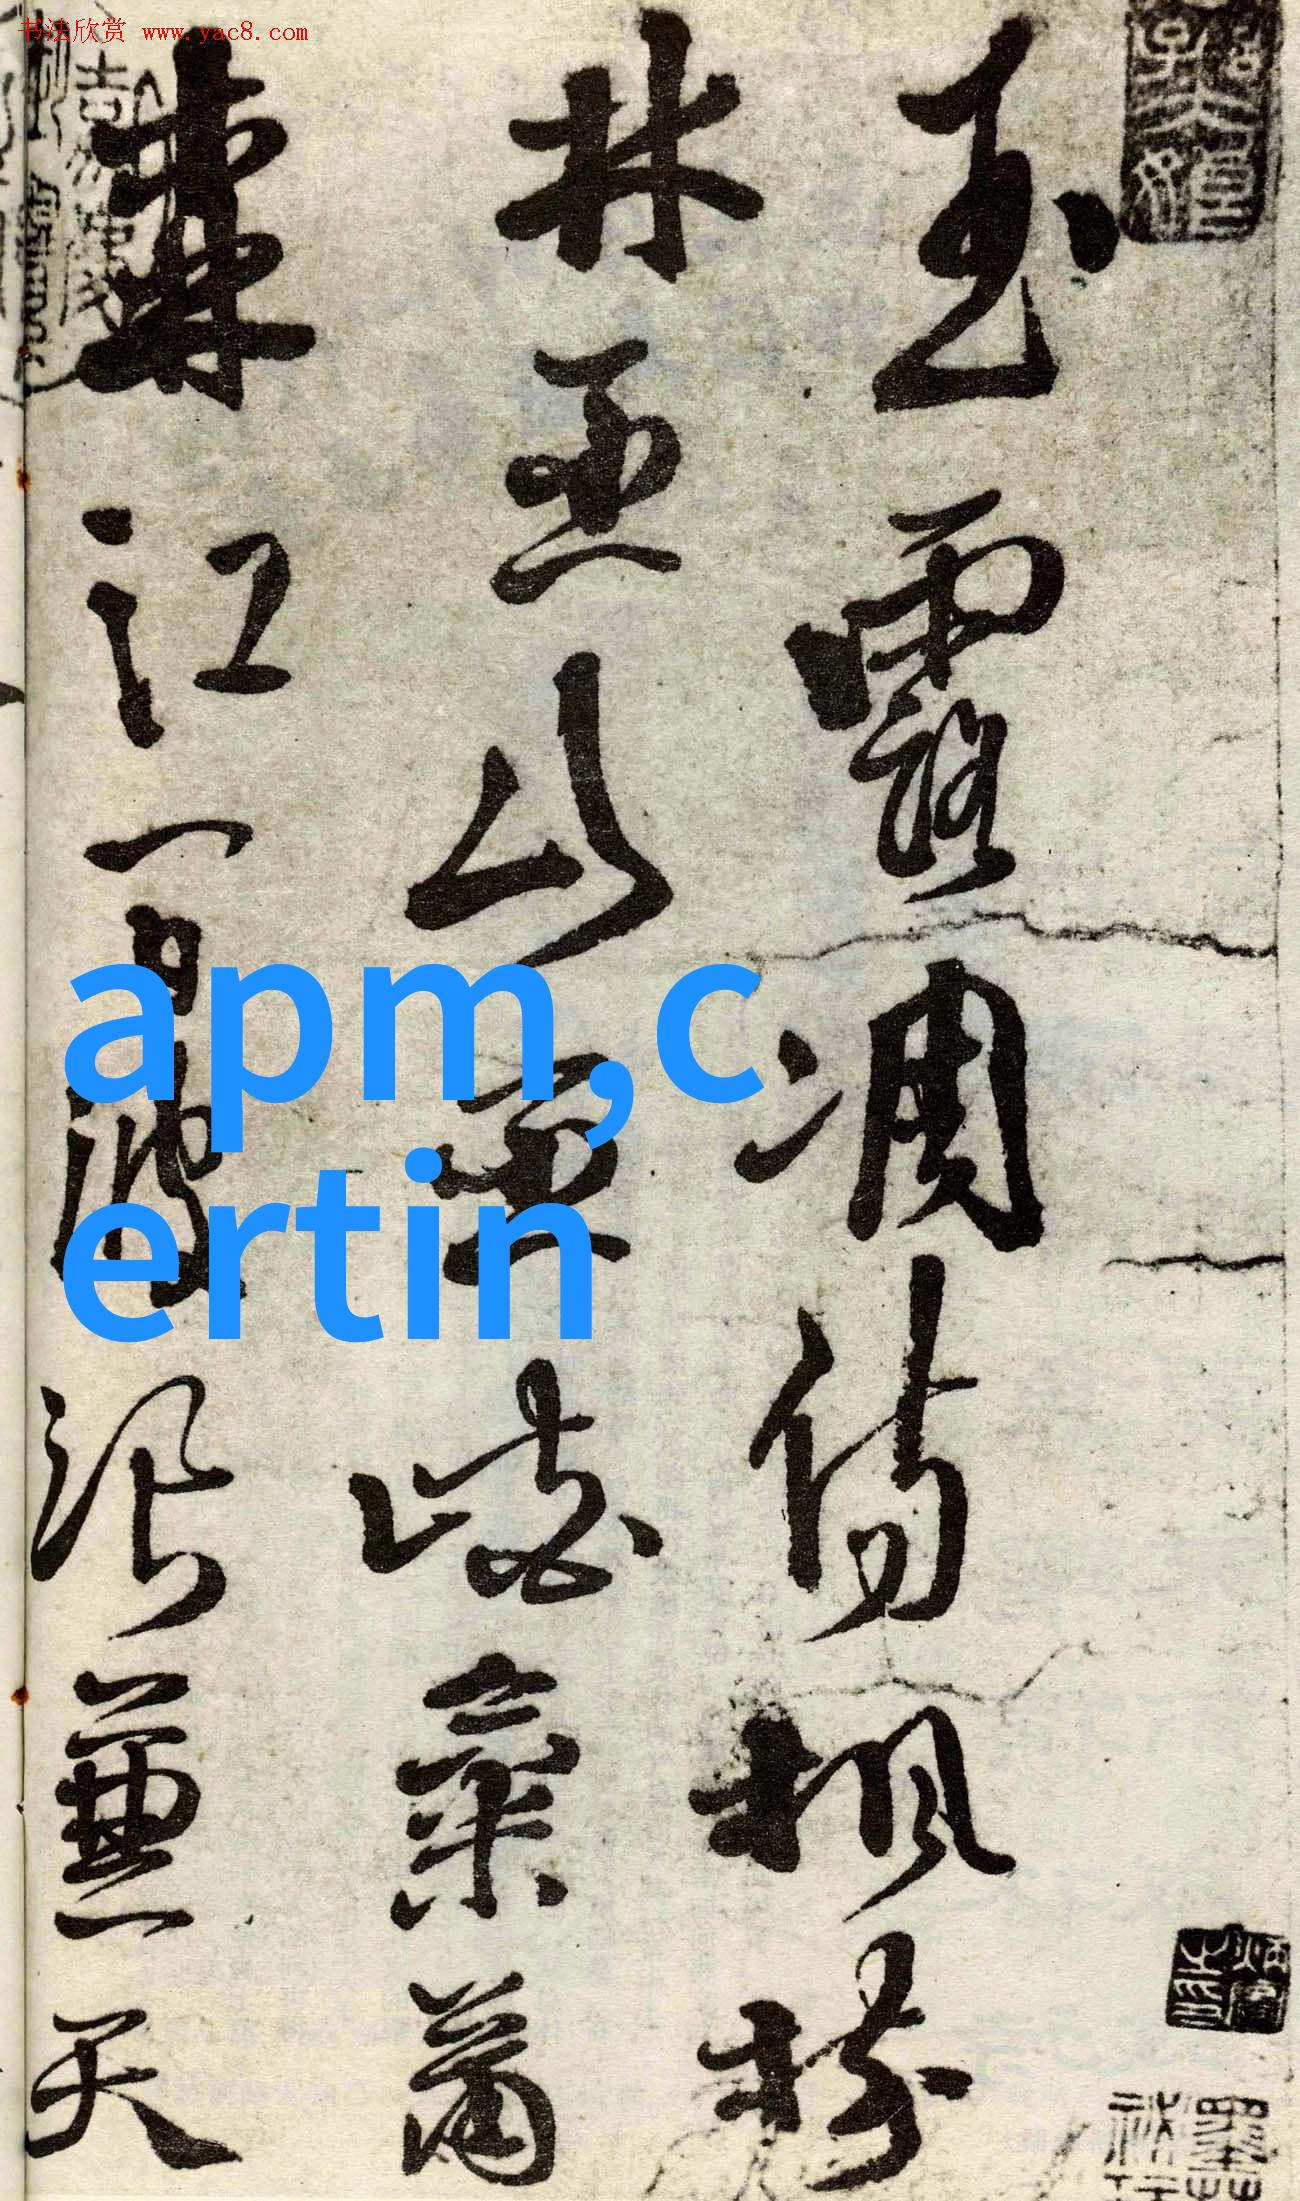 书法欣赏 www.yac8.com
玉露凋傷楓樹
林巫山巫峽氣蕭
森江間波浪兼天
apm,c
ertin